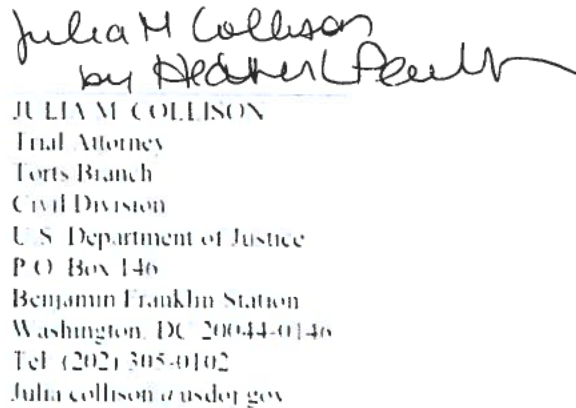 Julia M Collison
by Heather L
JULIA M. COLLISON
Trial Attorney
Torts Branch
Civil Division
U.S. Department of Justice
P.O. Box 146
Benjamin Franklin Station
Washington, DC 20044-0146
Tel: (202) 305-0102
Julia.collison@usdoj.gov